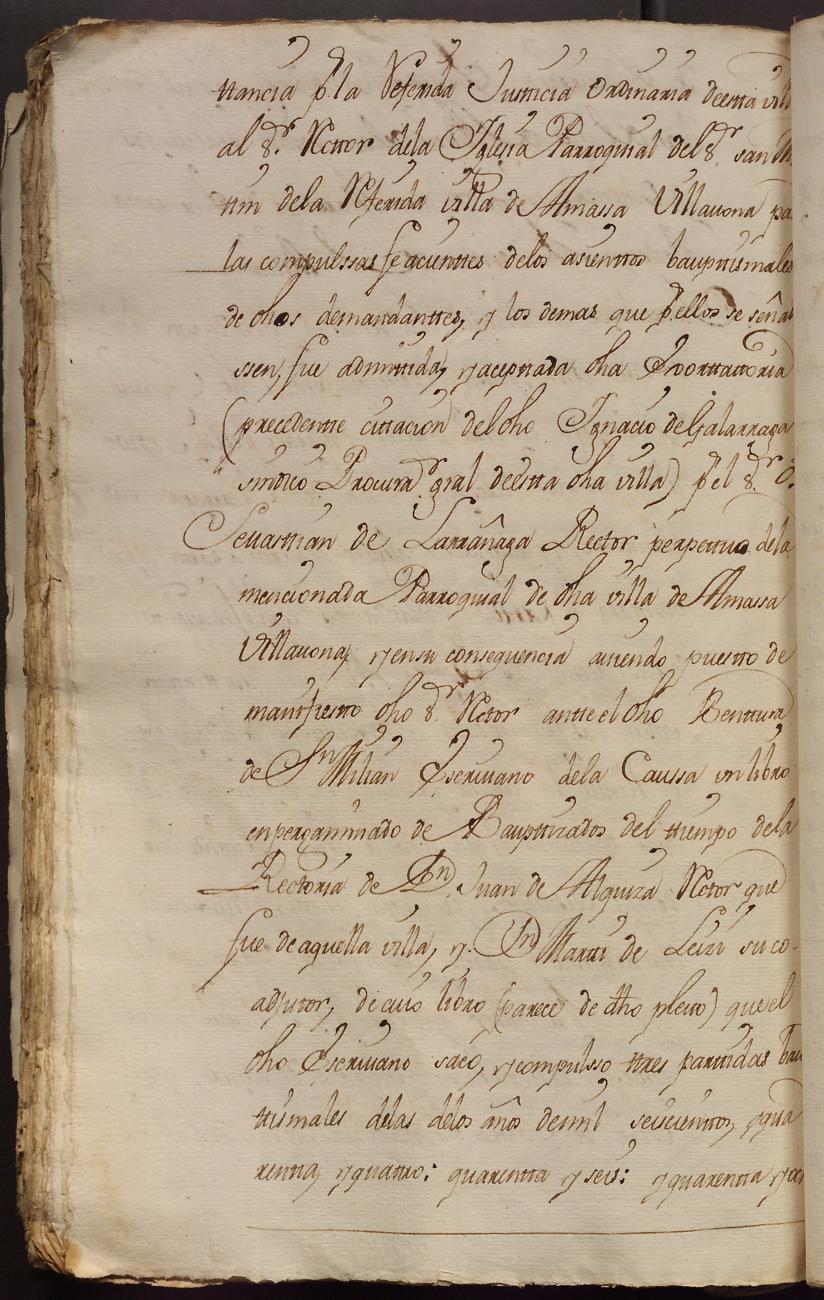 ttancia p.r la Referida Justicia Ordinaria deesta vill
al S.r Rettor dela Iglesia Parroquial del S.r san M
ttin dela Referida villa de Amassa Villavona pa
las compulssas feacienttes delos asienttos bauptismales
de dhos demandanttes, y los demas que p.r ellos se señal
ssen, fue admitida, y aceptada dha Exorttattoria
(precedentte cittacion del dho Ignacio de Galarraga
sindico Procurad.r gral deestta dha villa) p.r el S.r D.
Sevasttian de Larrañaga Rector perpettuo dela
mencionada Parroquial de dha villa de Amassa
Villavona, y ensu consequencia aviendo puestto de
manifiestto dho S.r Rector antte el dho Benttura
de S.n Milian Escrivano dela Caussa un libro
enpergaminado de Baupttizados del ttiempo dela
Rectoria de D.n Juan de Alquiza Rector que
fue de aquella villa, y D.n Martin de Leizi su co-
adjutor, de cuio libro (parece de dho pleito) que el
dho Escrivano sacò, y compulsso ttres parttidas bau
ttismales delas delos años demil seiscienttos, y qua
rentta, y quattro: quarentta y seis: y quarentta y oc